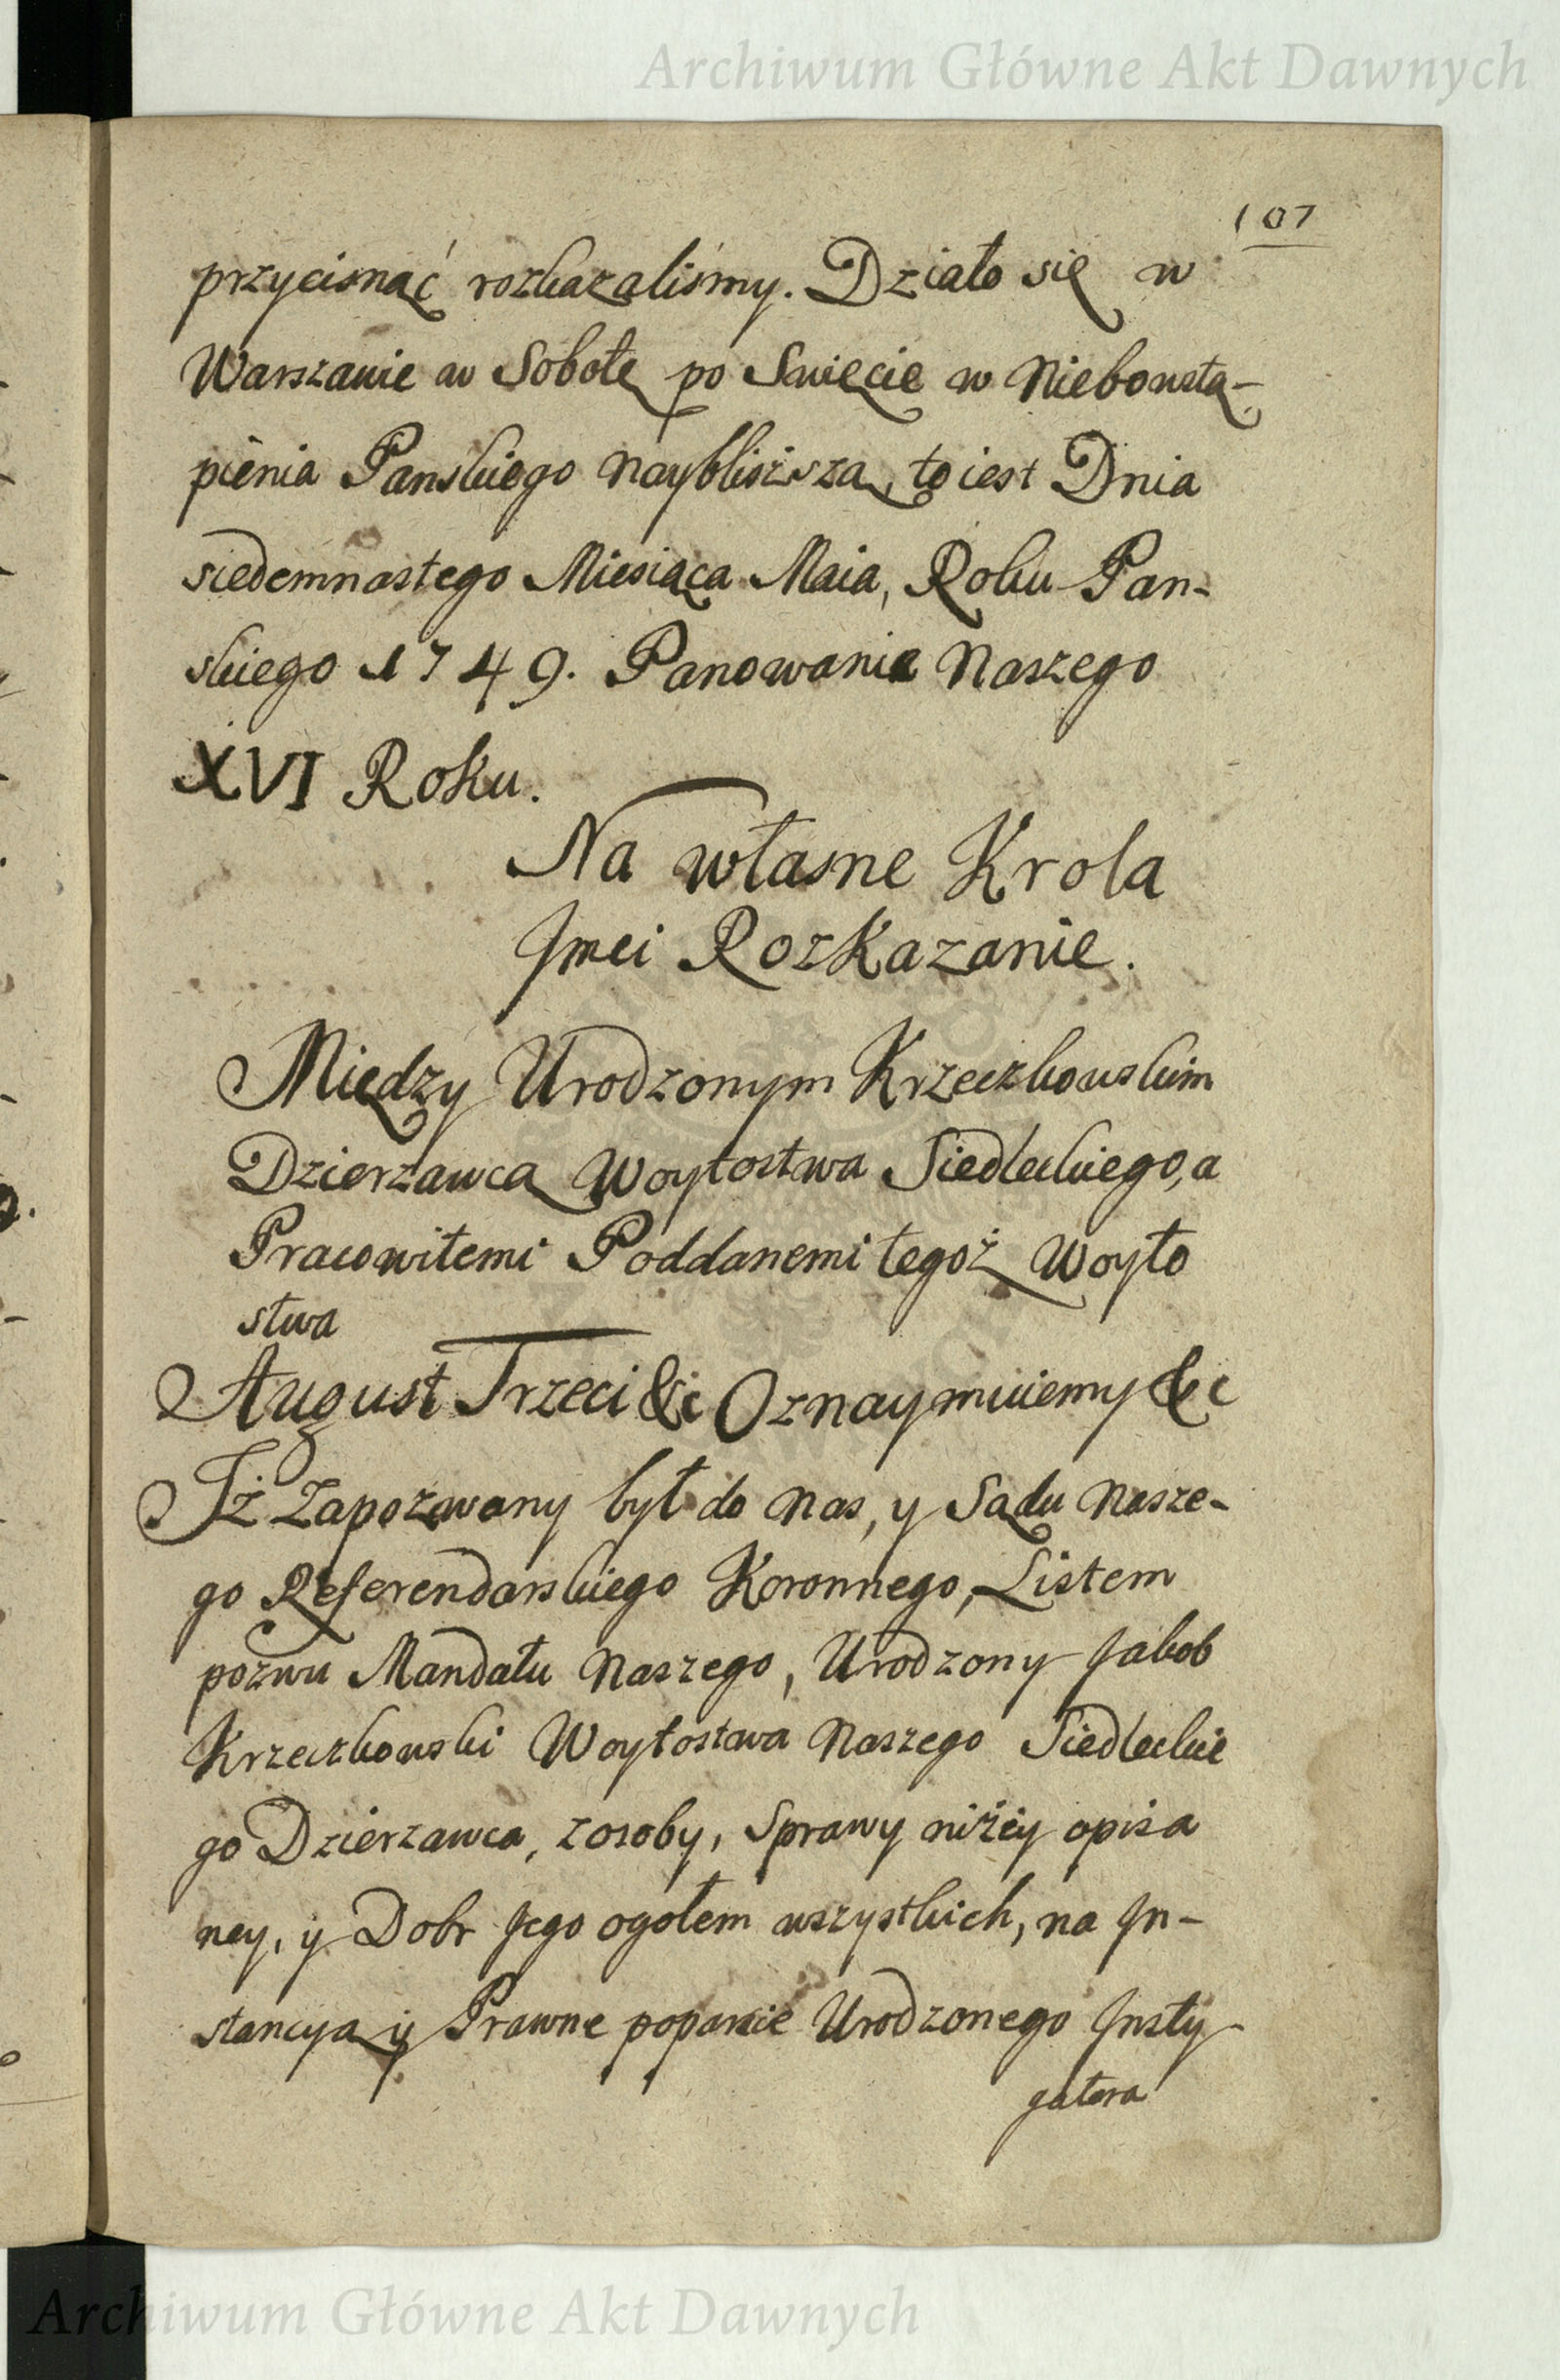 Archiwum Główne Akt Dawnych
107
przycisnąć rozkazalismy. Działo się w
Warszawie w Sobotę po Swięcie w Niebowstą-
pienia Panskiego naybliższą, to iest Dnia
siedemnastego Miesiąca Maia, Roku Pan-
skiego 1749. Panowania Naszego
XVI Roku.
Na własne Krola
Jmci Rozkazanie.
Między Urodzonym Krzeczkowskim
Dzierzawcą Woytostwa Siedleckiego, a
Pracowitemi Poddanemi tegoż Woyto
stwa
August Trzeci &c Oznaymuiemy &c
Iż Zapozwany był do nas, y Sądu Nasze-
go Referendarskiego Koronnego, Listem
pozwu Mandatu Naszego, Urodzony Jakob
Krzeczkowski Woytostwa Naszego Siedleckie
go Dzierzawca, z osoby, Sprawy niżey opisa
ney, y Dobr Jego ogołem wszystkich, na In-
stancyą y Prawne popanie Urodzonego Insty-
gatora
Archiwum Główne Akt Dawnych